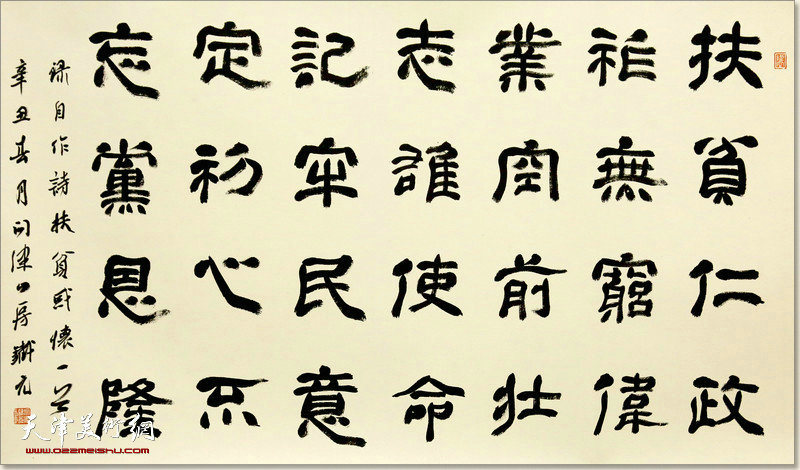 扶貧仁政
祚無窮偉
業空前壯
志雄使命
記牢民意
定初心不
忘黨恩隆
录自作詩扶貧感懷一首
辛丑春月问津山房鐵元
天津美術網
www.022meishu.com